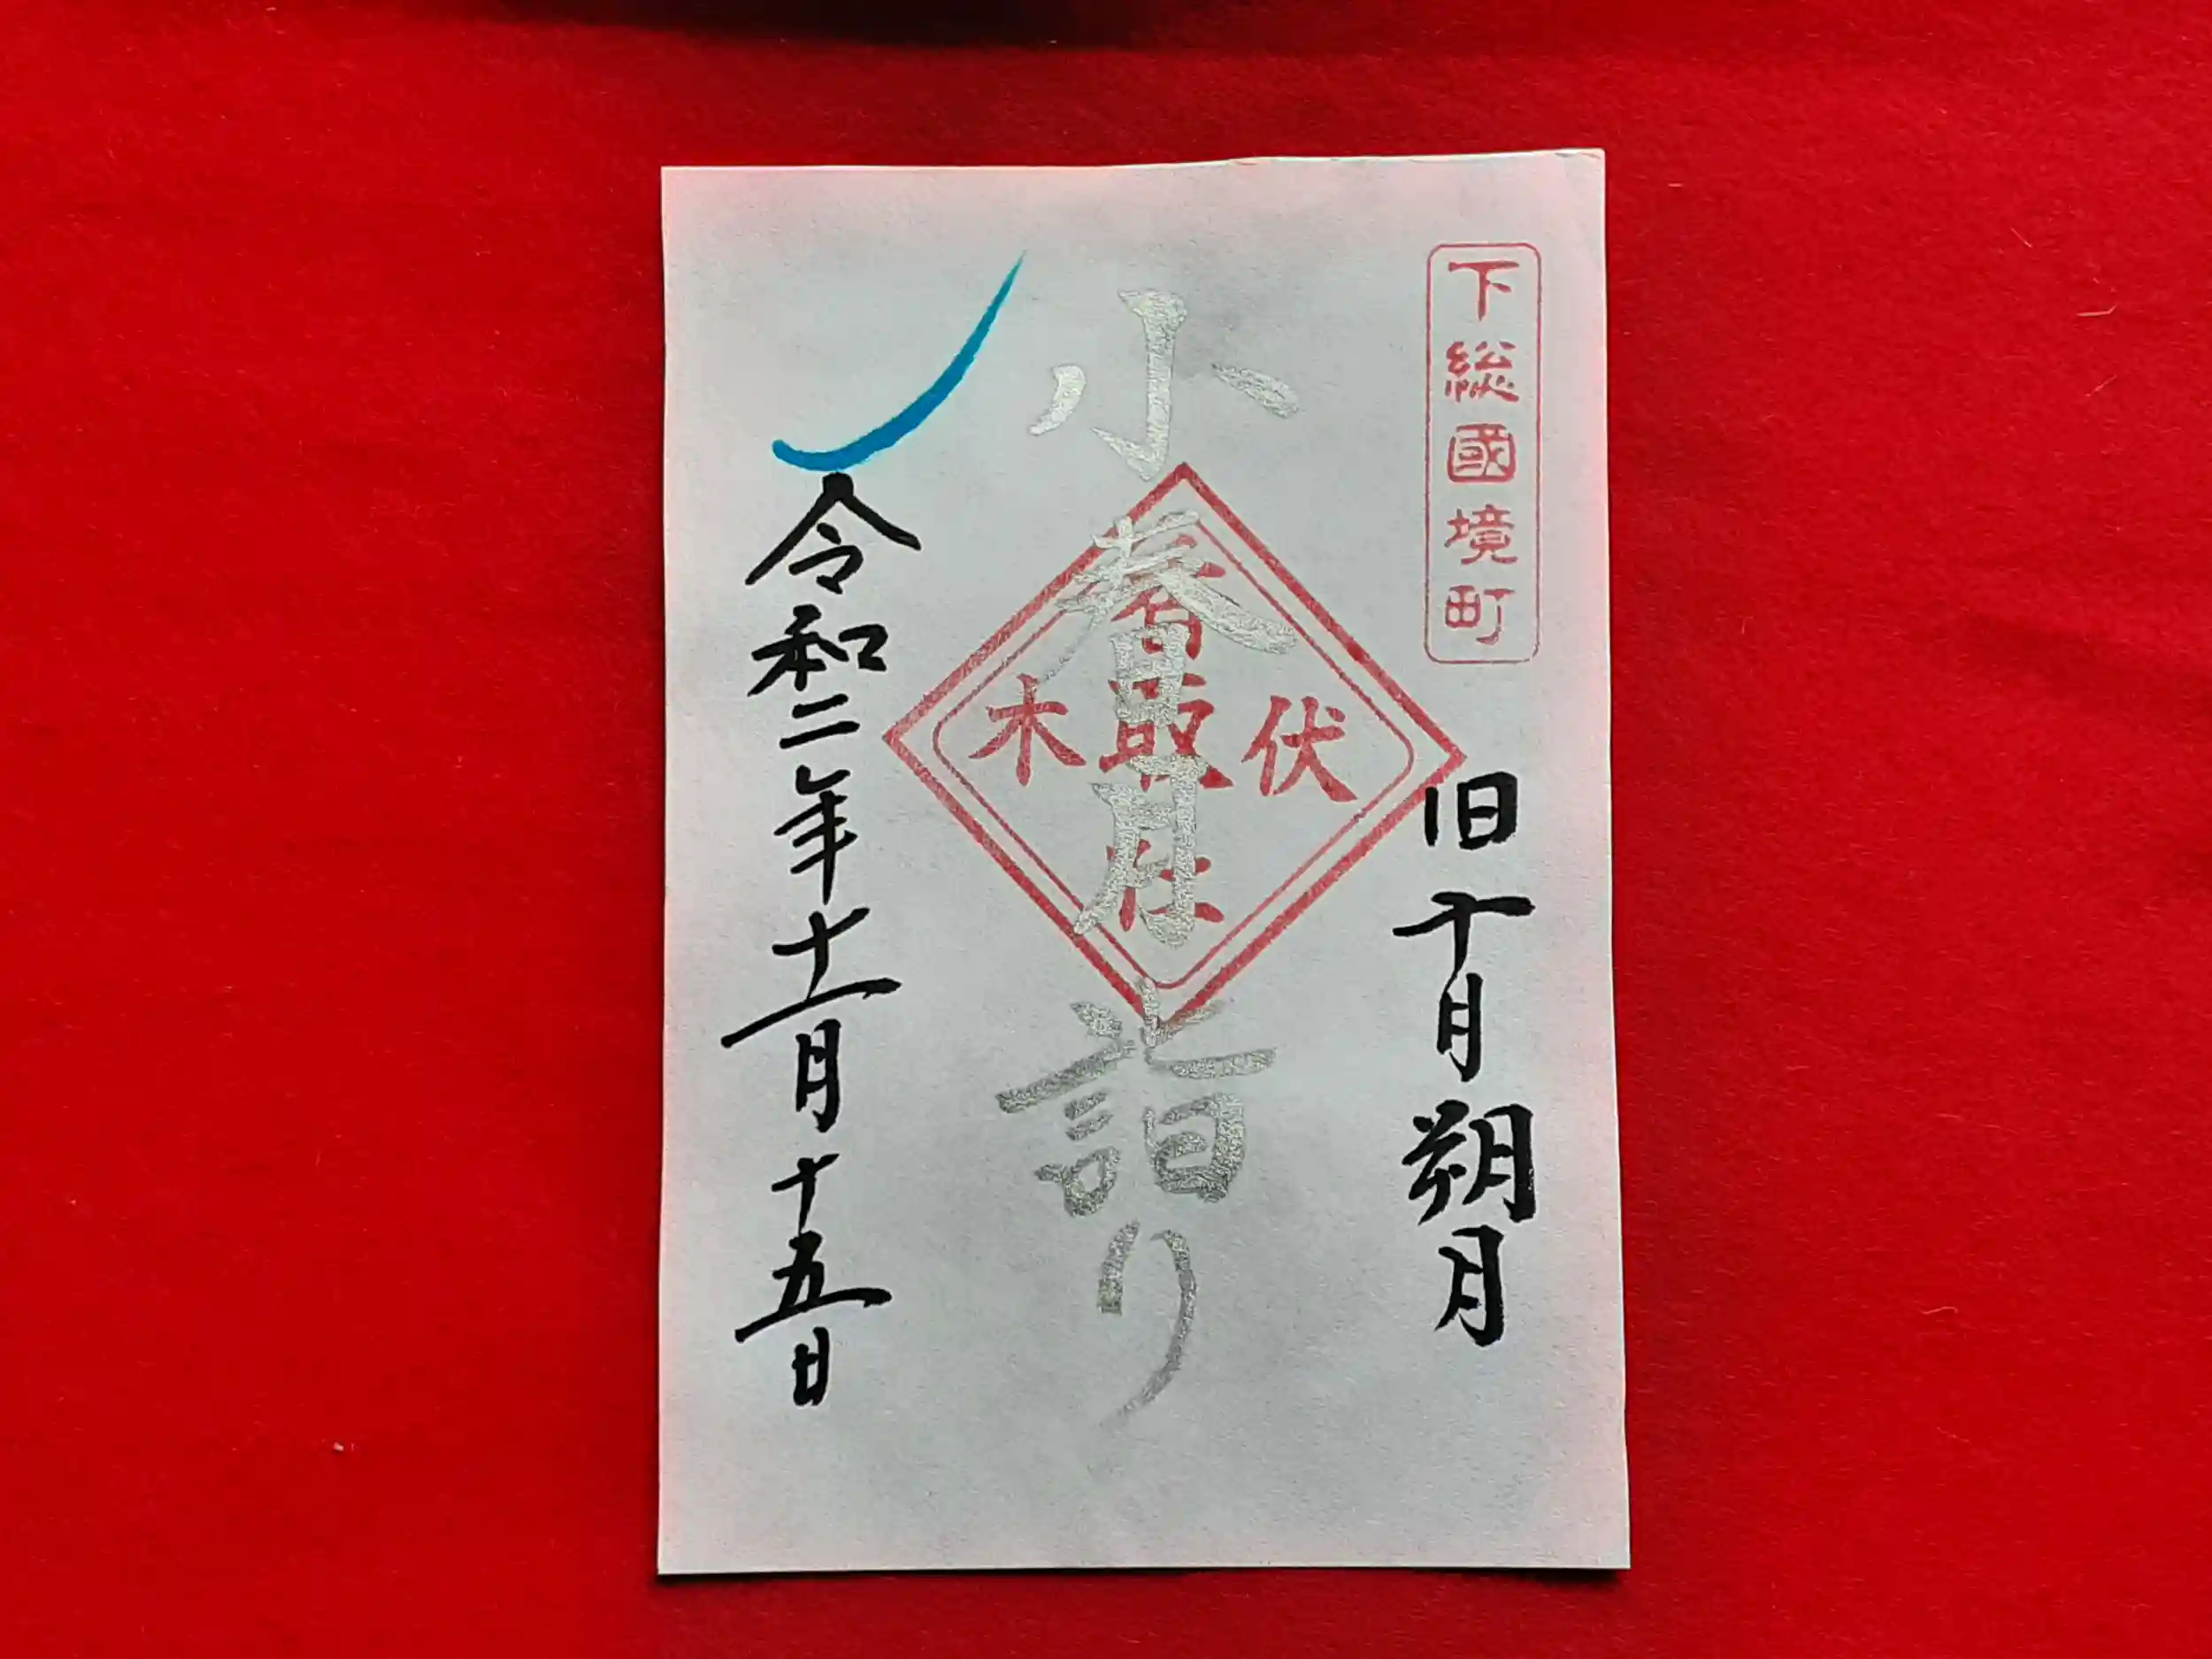 下総國境町
旧十月朔月
伏木
香取社
小春月詣り
令和二年十一月十五日